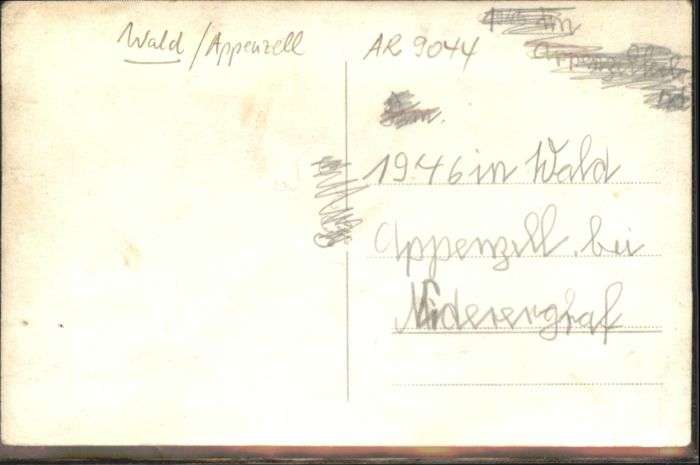 Wald / Appenzell AR 9044
1946 in Wald
Appenzell. bei
Niderergraf